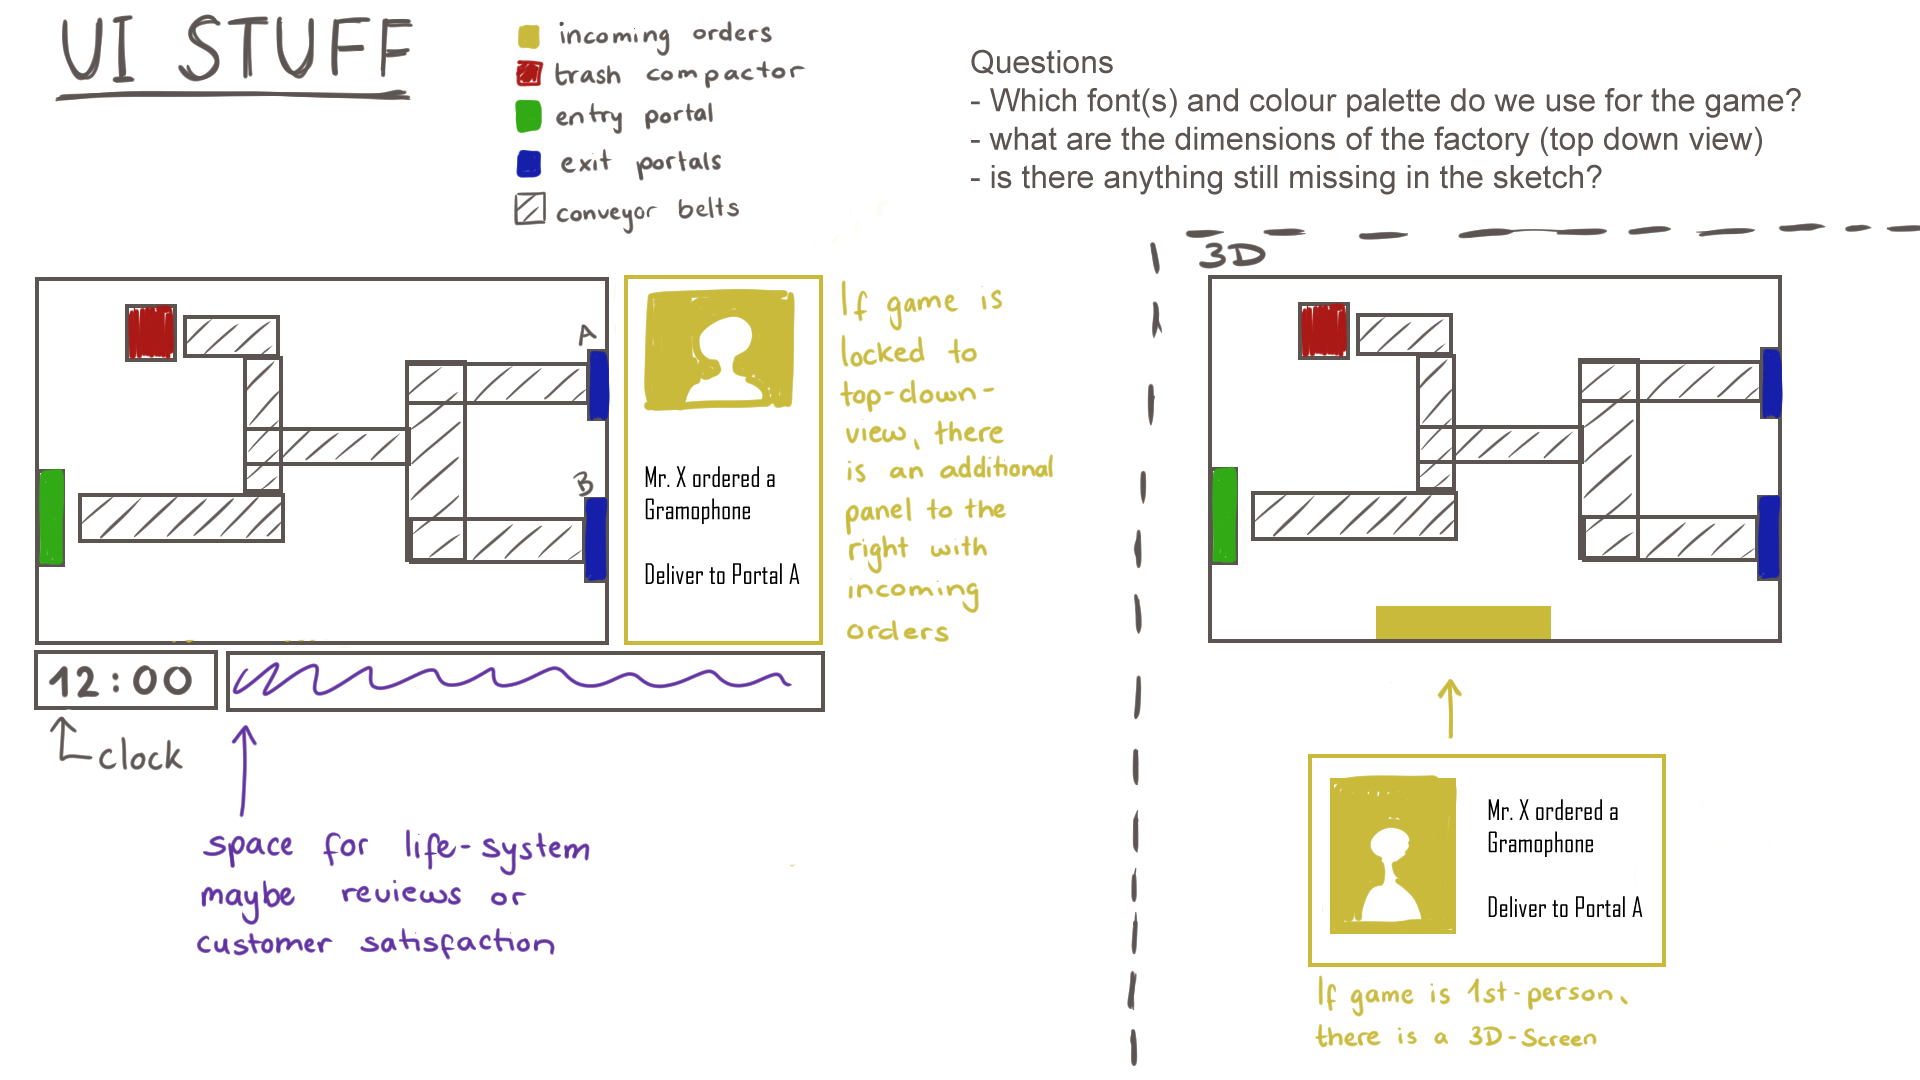 UI STUFF
incoming orders
trash compactor
entry portal
exit portals
conveyor belts
Questions
- Which font(s) and colour palette do we use for the game?
- what are the dimensions of the factory (top down view)
- is there anything still missing in the sketch?
A
B
Mr. X ordered a
Gramophone
Deliver to Portal A
If game is
locked to
top-down-
view, there
is an additional
panel to the
right with
incoming
orders
12:00
clock
space for life-system
maybe reviews or
customer satisfaction
3D
Mr. X ordered a
Gramophone
Deliver to Portal A
If game is 1st-person,
there is a 3D-Screen